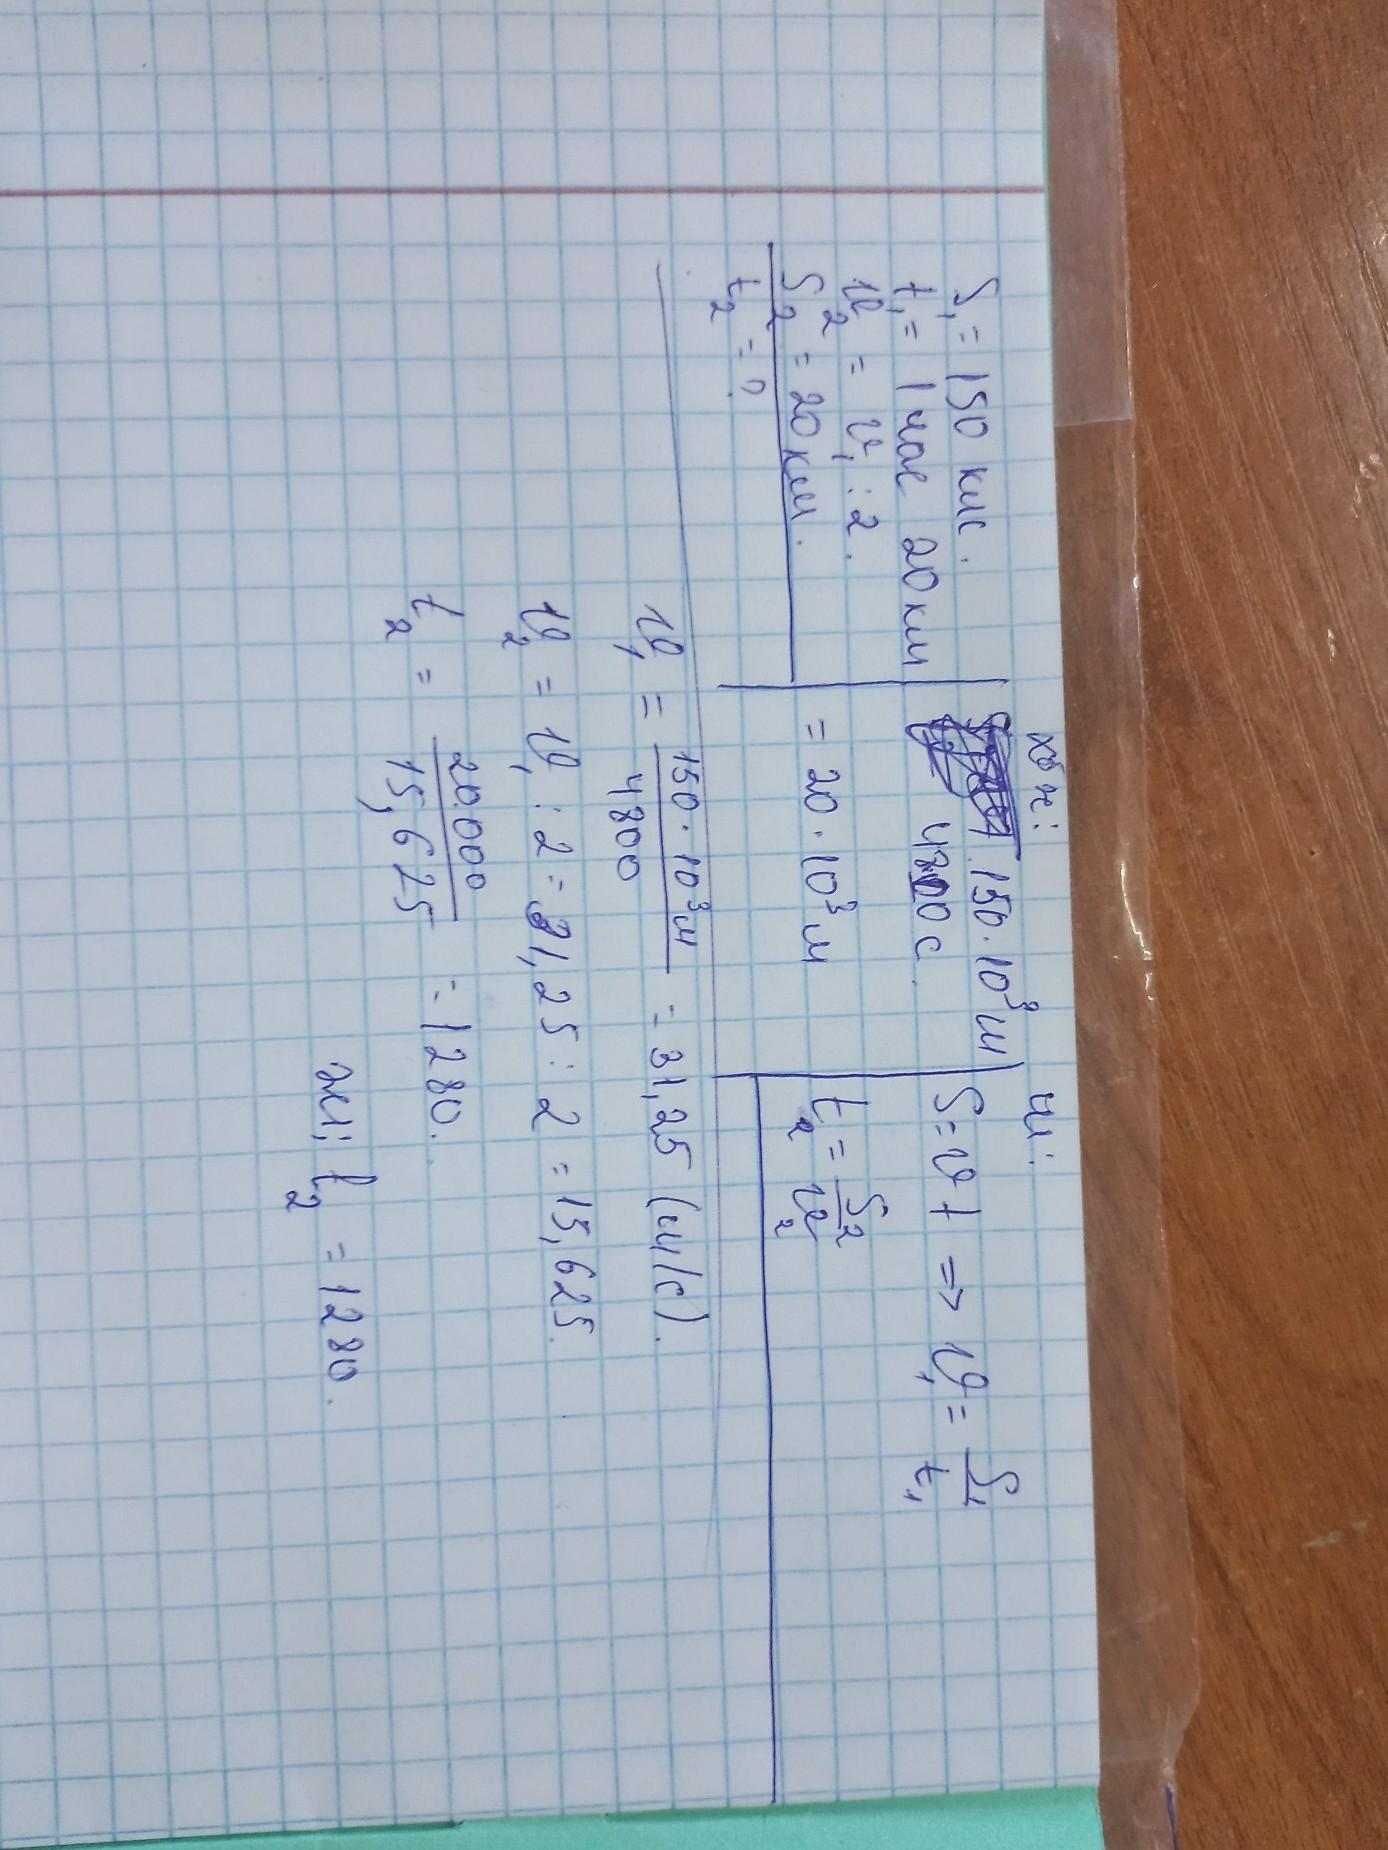 S₁ = 150 км.
t₁ = 1 час 20 км
v₂ = v₁ : 2.
S₂ = 20 км.
t₂ = ?
ХБЖ:
150·10³ м
4800 с
= 20·10³ м
S = v t ⇒ v₁ = S₁/t₁
t₂ = S₂/v₂
v₁ = 150·10³ м / 4800 = 31,25 (м/с).
v₂ = v₁ : 2 = 31,25 : 2 = 15,625.
t₂ = 20000 / 15,625 = 1280.
t₂ = 1280.